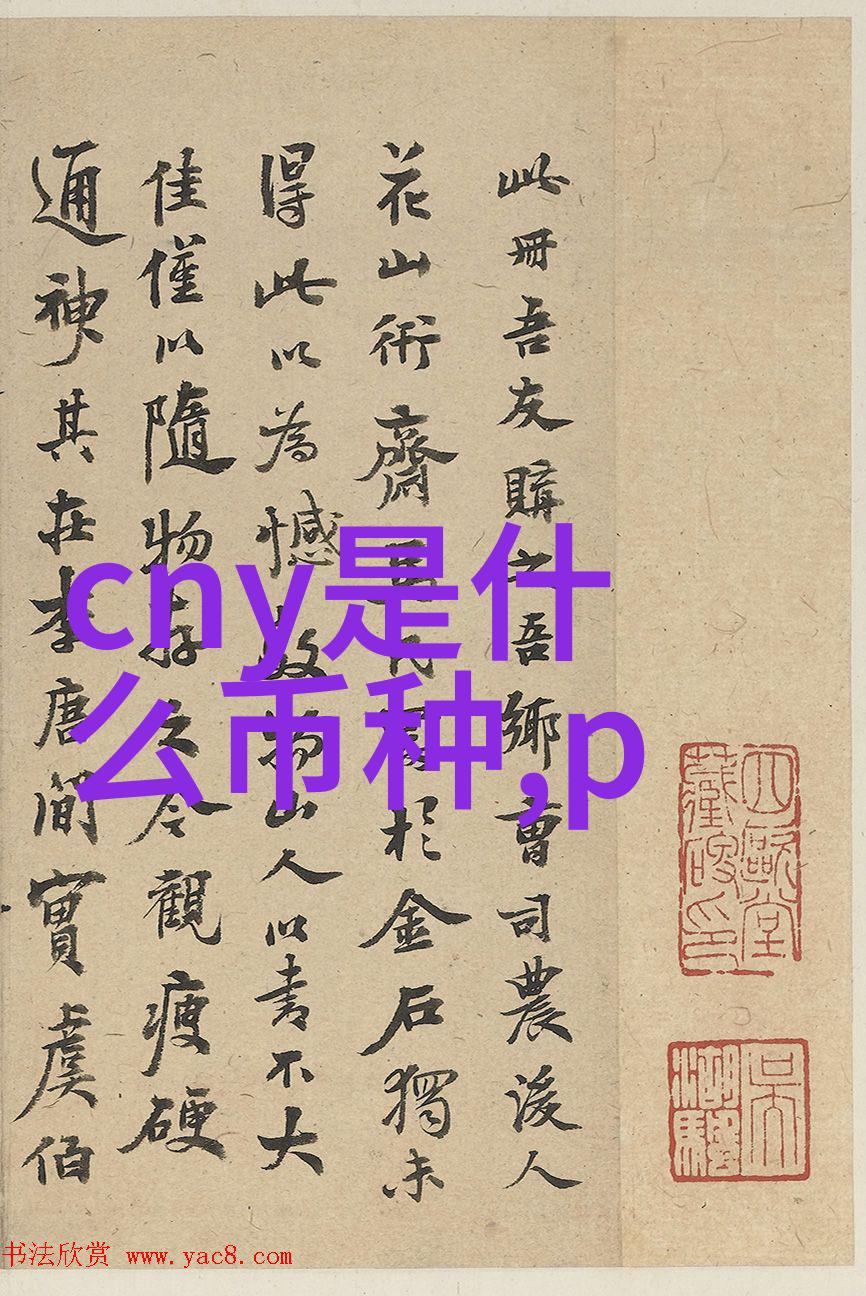 此冊吾友購之吾鄉曹司農後人
花山術齋於金石獨未
得此以為憾故物山人以書不大
佳僅以隨物存之今觀瘦硬
通神其在李唐簡實虞伯
cny是什
么币种,p
書法欣賞 www.yac8.com